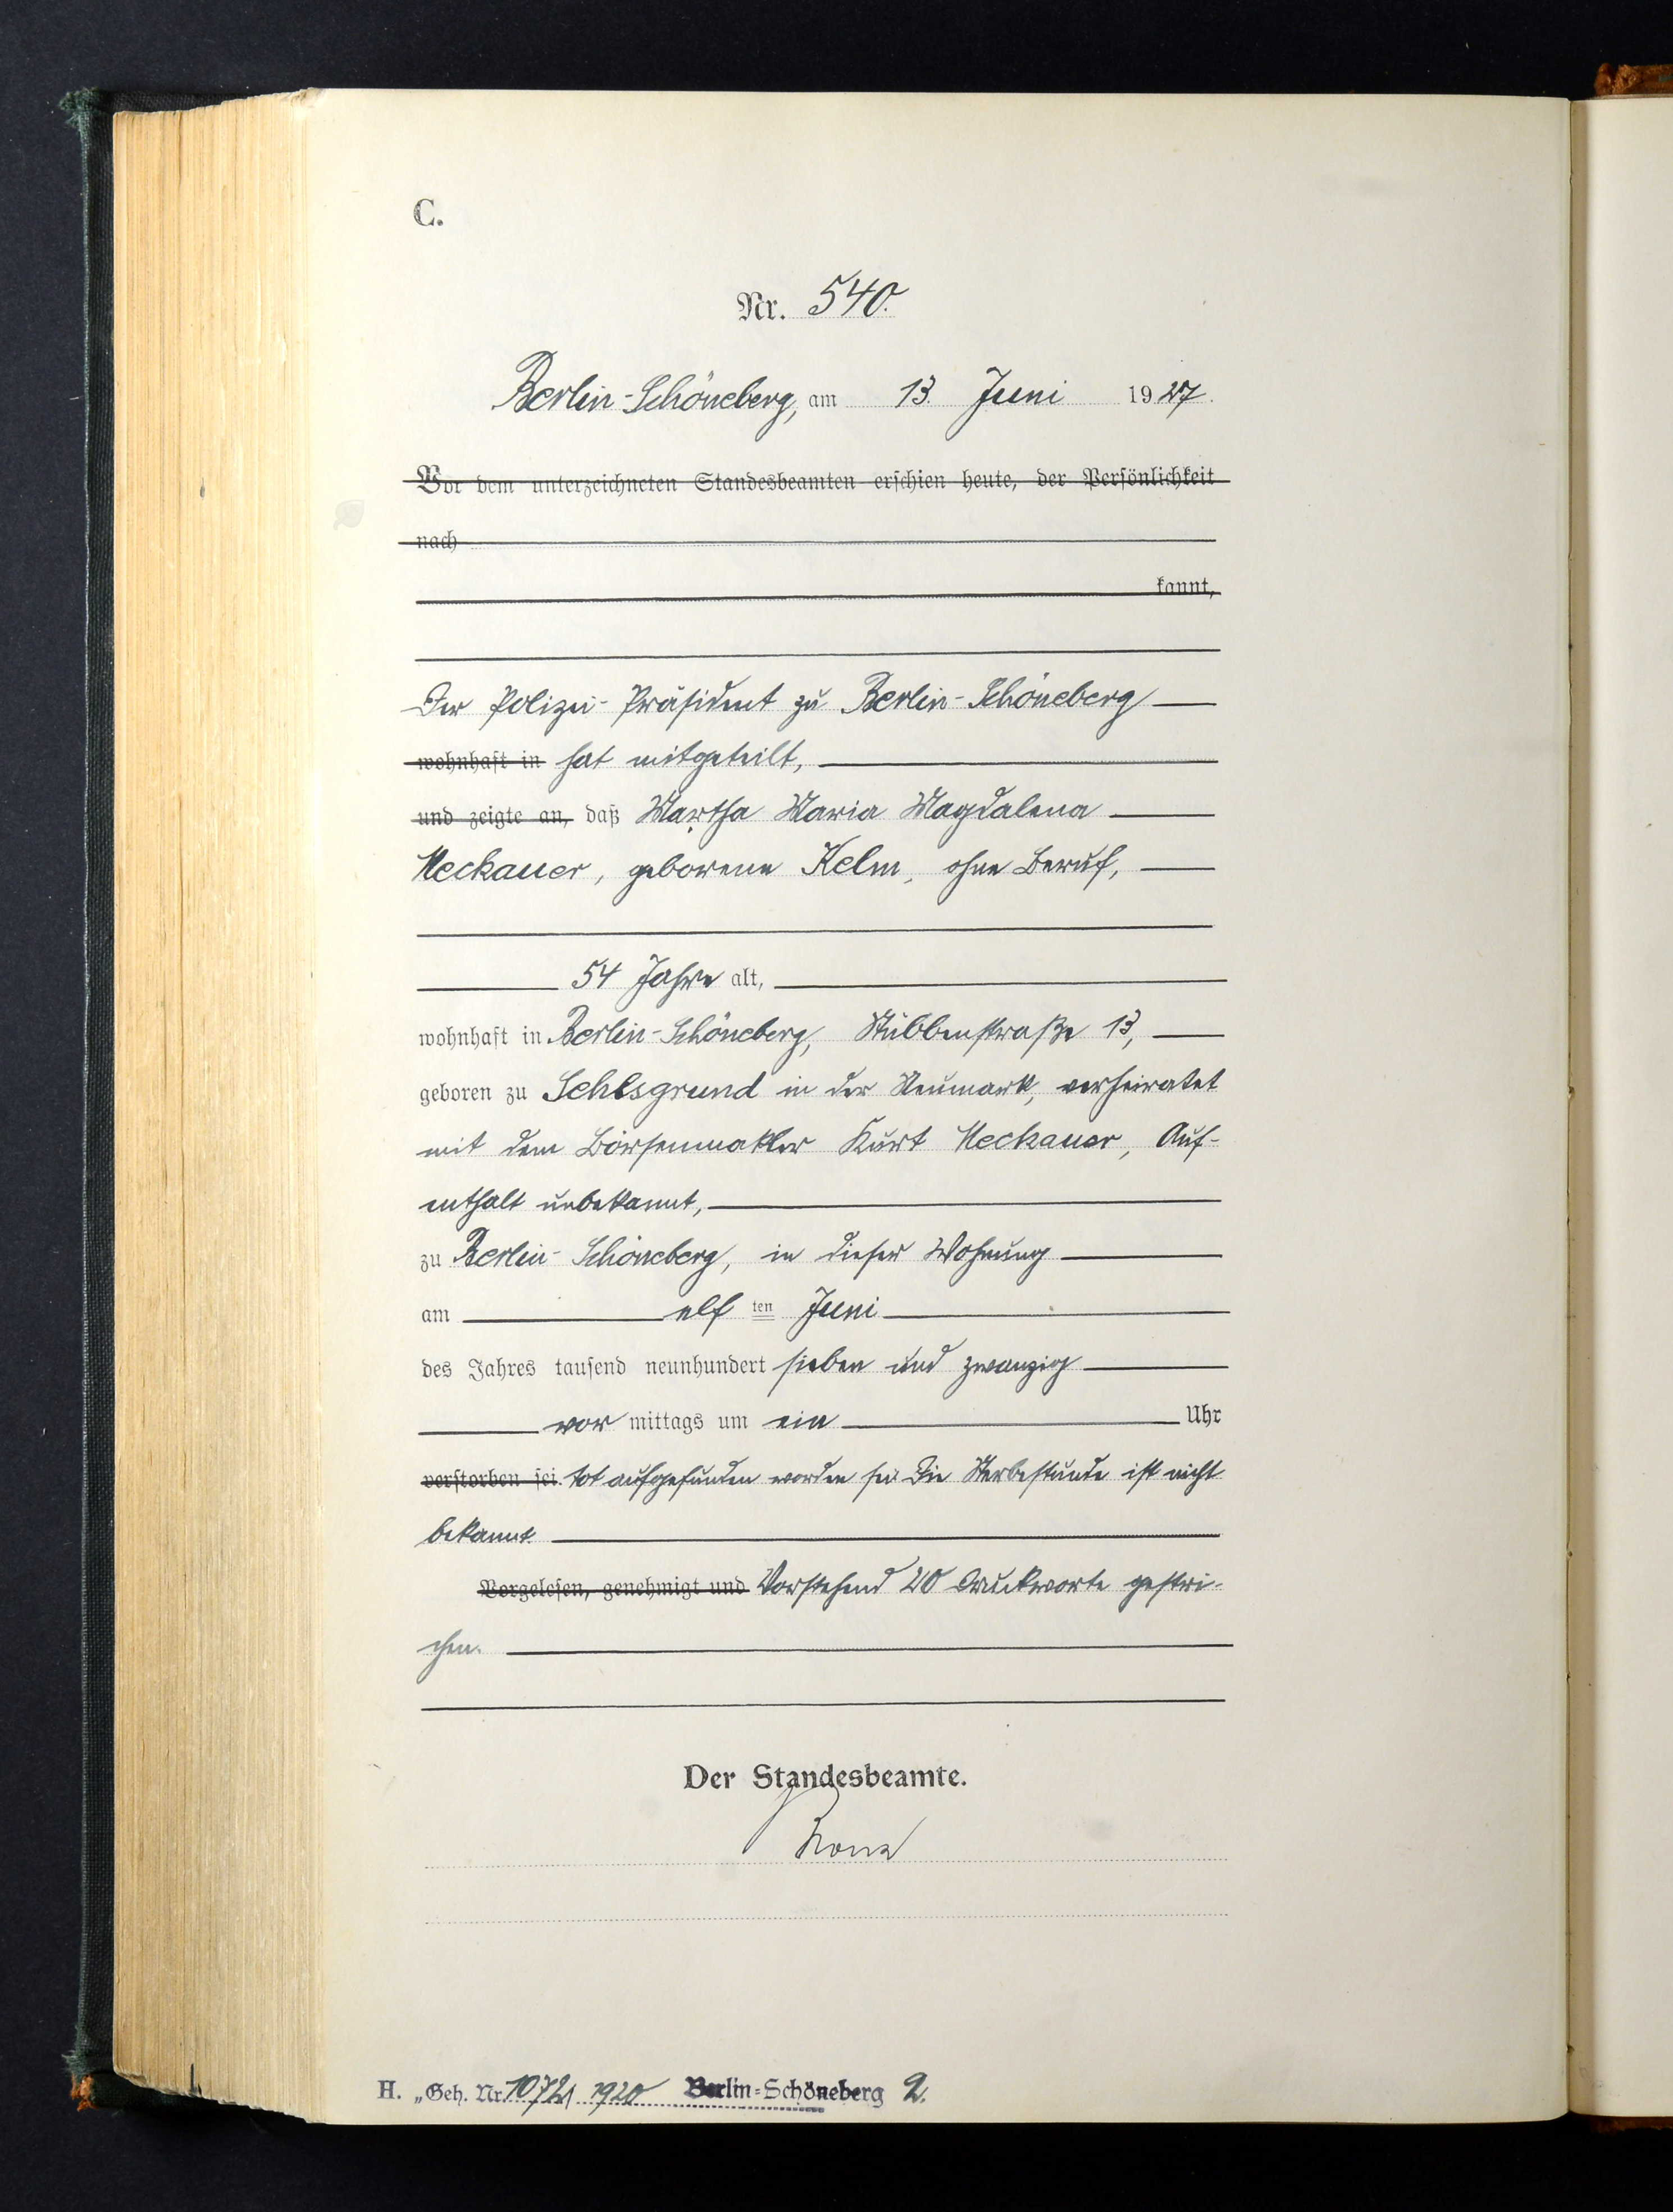 C.
Nr. 540.
Berlin-Schöneberg, am 13. Juni 1927.
Vor dem unterzeichneten Standesbeamten erschien heute, der Persönlichkeit
nach
kannt,
Der Polizei-Präsident zu Berlin-Schöneberg
wohnhaft in hat mitgeteilt,
und zeigte an, daß Martha Maria Magdalena
Neckauer, geborene Kelm, ohne Beruf,
54 Jahre alt,
wohnhaft in Berlin-Schöneberg, Stübbenstraße 13,
geboren zu Sehlsgrund in der Neumark, verheiratet
mit dem Börsenmakler Kurt Neckauer, Auf-
enthalt unbekannt,
zu Berlin-Schöneberg, in dieser Wohnung
am elf ten Juni
des Jahres tausend neunhundert sieben und zwanzig
vor mittags um ein Uhr
verstorben sei. tot aufgefunden worden sei. Die Sterbestunde ist nicht
bekannt.
Vorgelesen, genehmigt und Vorstehend 20 Druckworte gestri-
chen.
Der Standesbeamte.
H. „Geh. Nr. 1920 Berlin-Schöneberg 2.